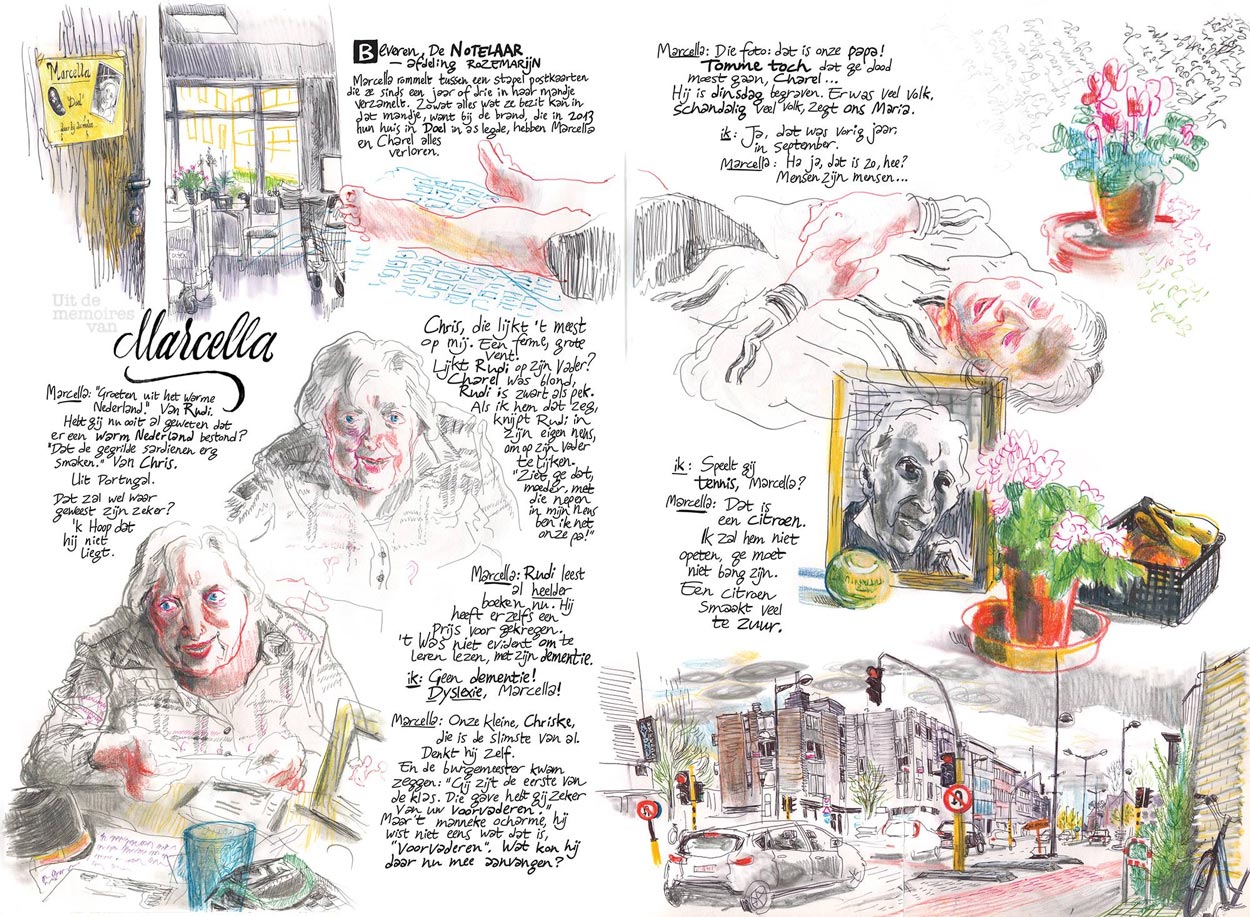 Marcella
"Doel"
Beveren, De NOTELAAR
— afdeling ROZEMARIJN
Marcella rommelt tussen een stapel postkaarten
die ze sinds een jaar of drie in haar mandje
verzamelt. Zowat alles wat ze bezit kan in
dat mandje, want bij de brand, die in 2013
hun huis in Doel in as legde, hebben Marcella
en Charel alles
verloren.
Uit de
memoires
van
Marcella
Marcella: "Groeten uit het warme
Nederland." Van Rudi.
Hebt gij nu ooit al geweten dat
er een warm Nederland bestond?
"Dat de gegrilde sardienen erg
smaken." Van Chris.
Uit Portugal.
Dat zal wel waar
geweest zijn zeker?
'k Hoop dat
hij niet
liegt.
Chris, die lijkt 't meest
op mij. Een ferme, grote
vent!
Lijkt Rudi op zijn vader?
Charel was blond,
Rudi is zwart als pek.
Als ik hem dat zeg,
knijpt Rudi in
zijn eigen nens,
om op zijn vader
te lijken.
"Ziet ge dat,
moeder, met
die nepen
in mijn nens
ben ik net
onze pa!"
Marcella: Rudi leest
al heelder
boeken nu. Hij
heeft er zelfs een
Prijs voor gekregen.
't Was niet evident om te
leren lezen, met zijn dementie.
ik: Geen dementie!
Dyslexie, Marcella!
Marcella: Onze kleine, Chriske,
die is de slimste van al.
Denkt hij zelf.
En de burgemeester kwam
zeggen: "Gij zijt de eerste van
de klas. Die gave hebt gij zeker
van uw voorvaderen."
Maar 't manneke ocharme, hij
wist niet eens wat dat is,
"Voorvaderen". Wat kon hij
daar nu mee aanvangen?
Marcella: Die foto: dat is onze papa!
Tomme toch dat ge dood
moest gaan, Charel...
Hij is dinsdag begraven. Er was veel volk,
schandalig veel volk, zegt ons Maria.
ik: Ja, dat was vorig jaar,
in September.
Marcella: Ha ja, dat is zo, hee?
Mensen zijn mensen...
ik: Speelt gij
tennis, Marcella?
Marcella: Dat is
een citroen.
Ik zal hem niet
opeten, ge moet
niet bang zijn.
Een citroen
smaakt veel
te zuur.